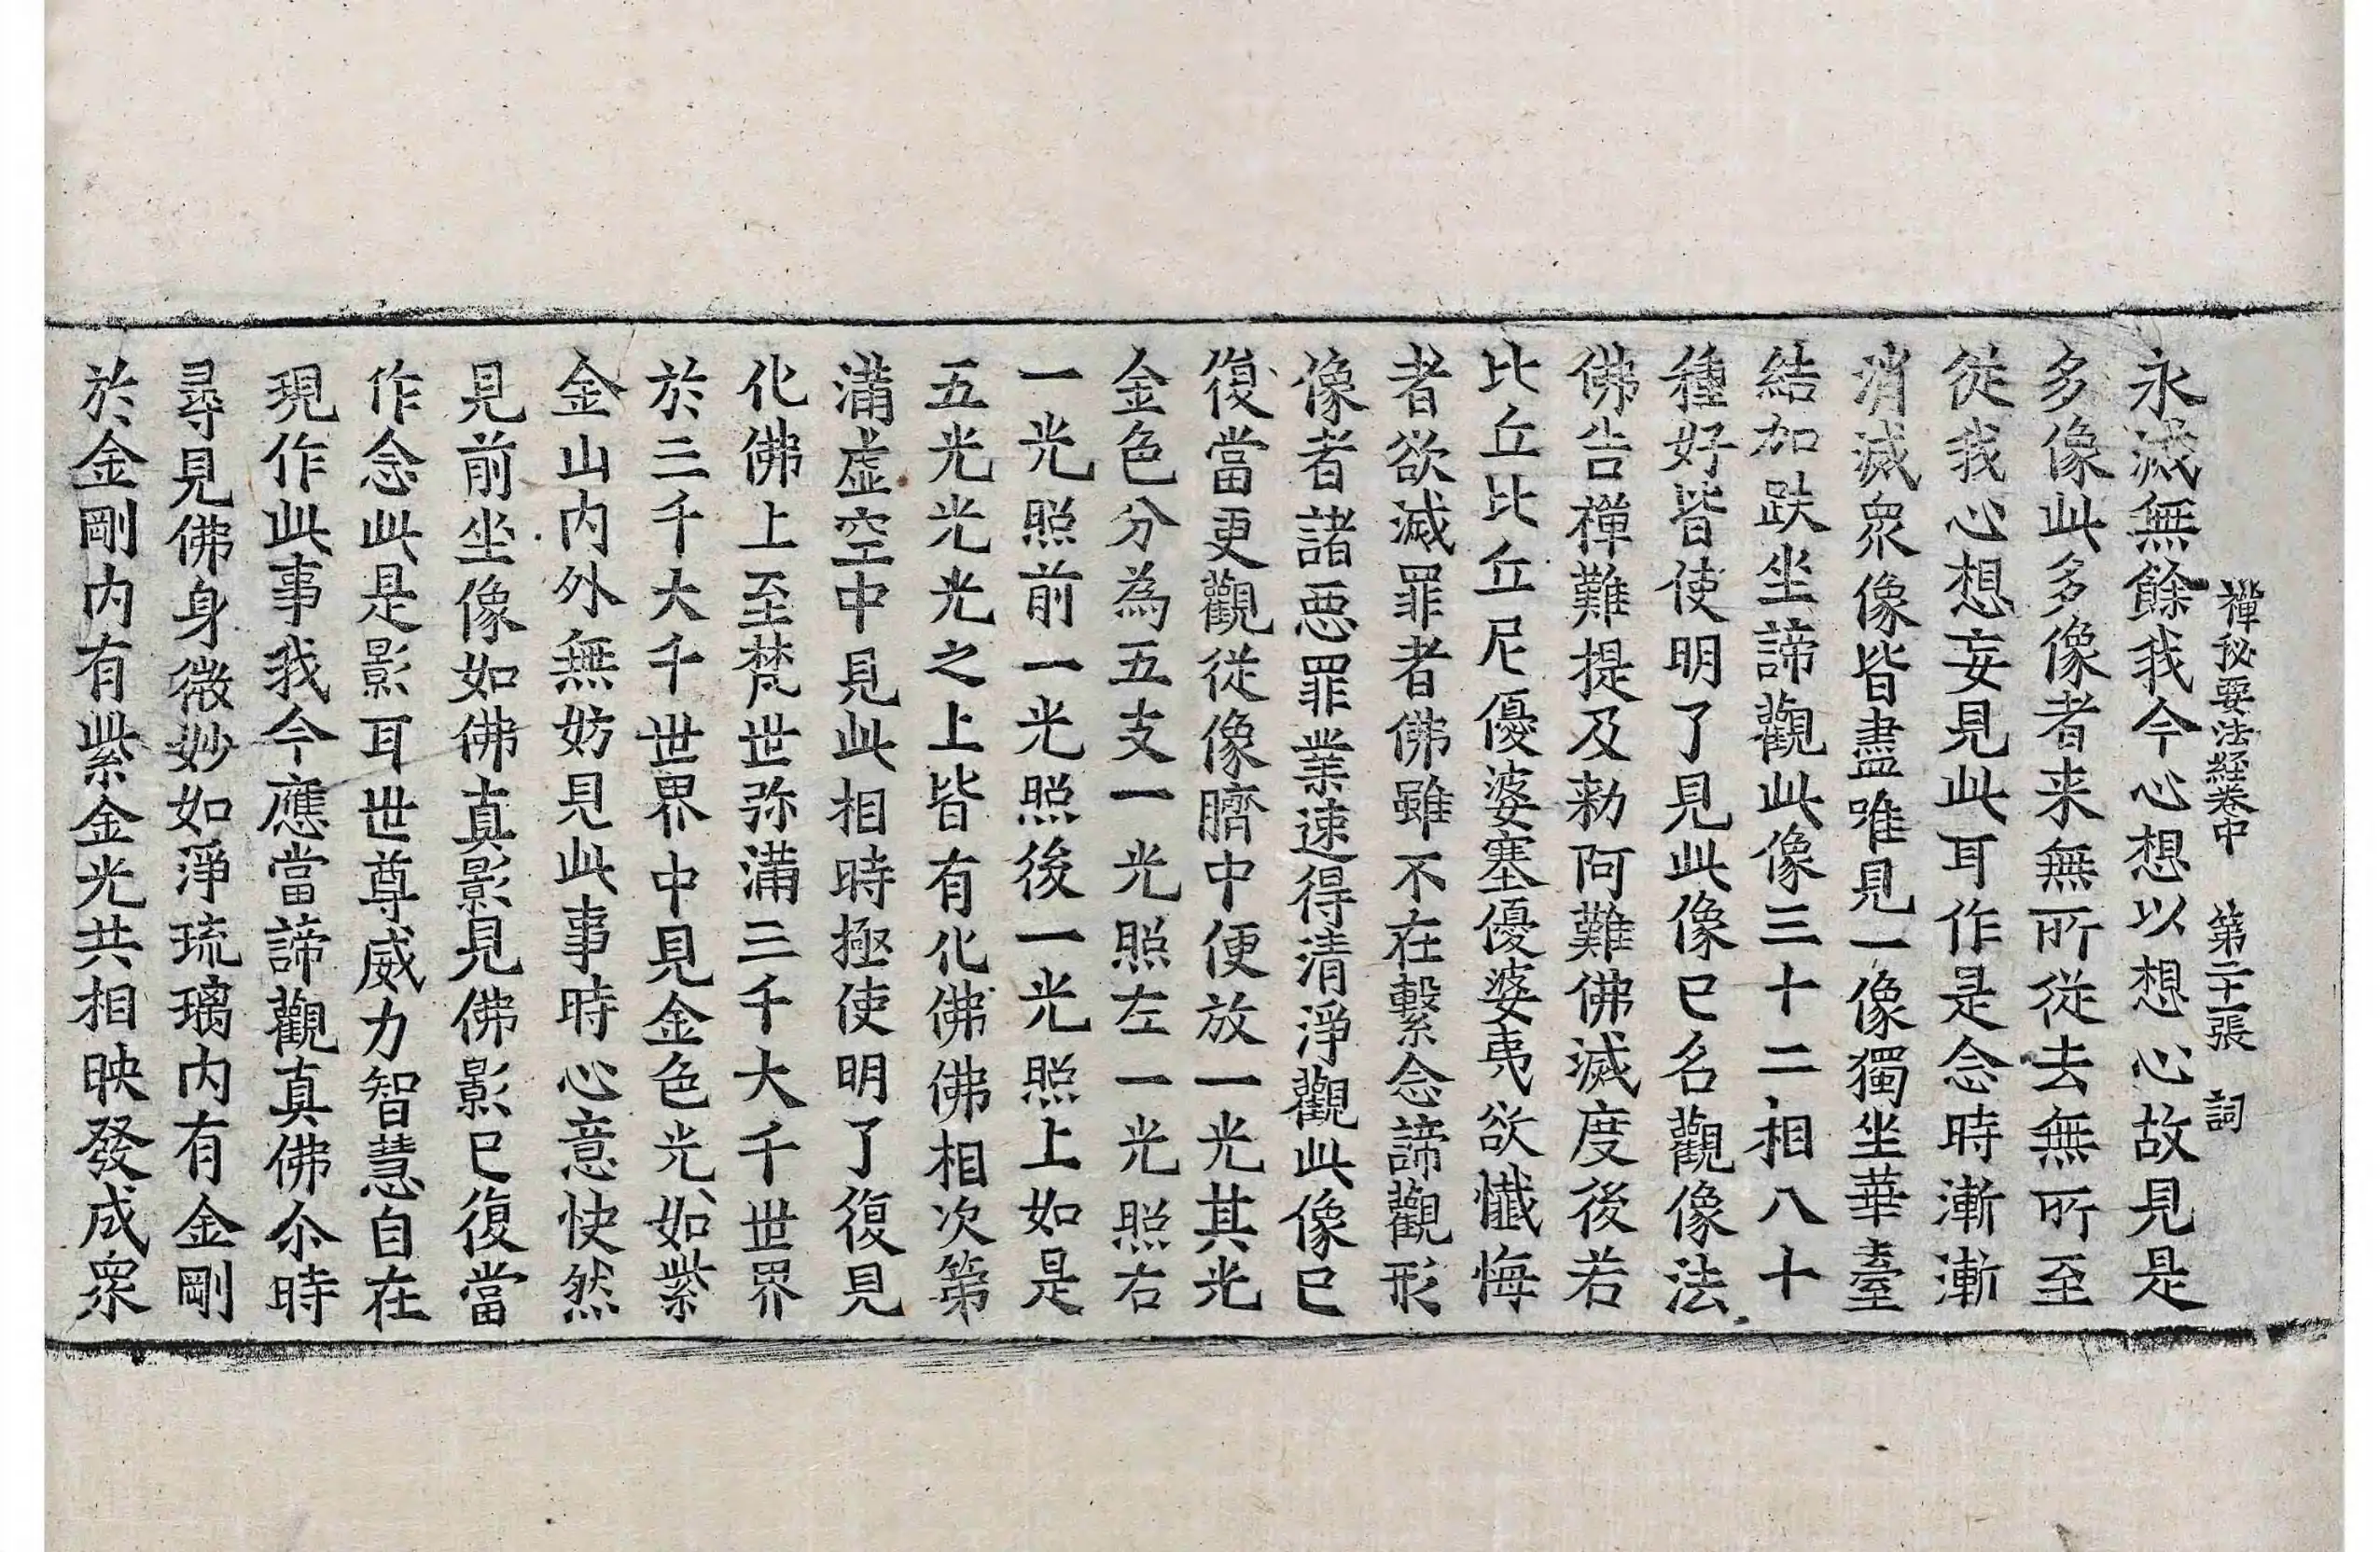 禪秘要法経卷中　第二十一張　詞
永滅無餘我今心想以想心故見是
多像此多像者来無所従去無所至
従我心想妄見此耳作是念時漸漸
消滅衆像皆盡唯見一像獨坐華臺
結加趺坐諦觀此像三十二相八十
種好皆使明了見此像已名觀像法
佛告禪難提及勑阿難佛滅度後若
比丘比丘尼優婆塞優婆夷欲懺悔
者欲滅罪者佛雖不在繫念諦觀形
像者諸惡罪業速得清淨觀此像已
復當更觀從像臍中便放一光其光
金色分為五支一光照左一光照右
一光照前一光照後一光照上如是
五光光光之上皆有化佛佛相次第
滿虚空中見此相時極使明了復見
化佛上至梵世弥滿三千大千世界
於三千大千世界中見金色光如紫
金山内外無妨見此事時心意快然
見前坐像如佛真影見佛影已復當
作念此是影耳世尊威力智慧自在
現作此事我今應當諦觀真佛尒時
尋見佛身微妙如淨琉璃内有金剛
於金剛内有紫金光共相映發成衆